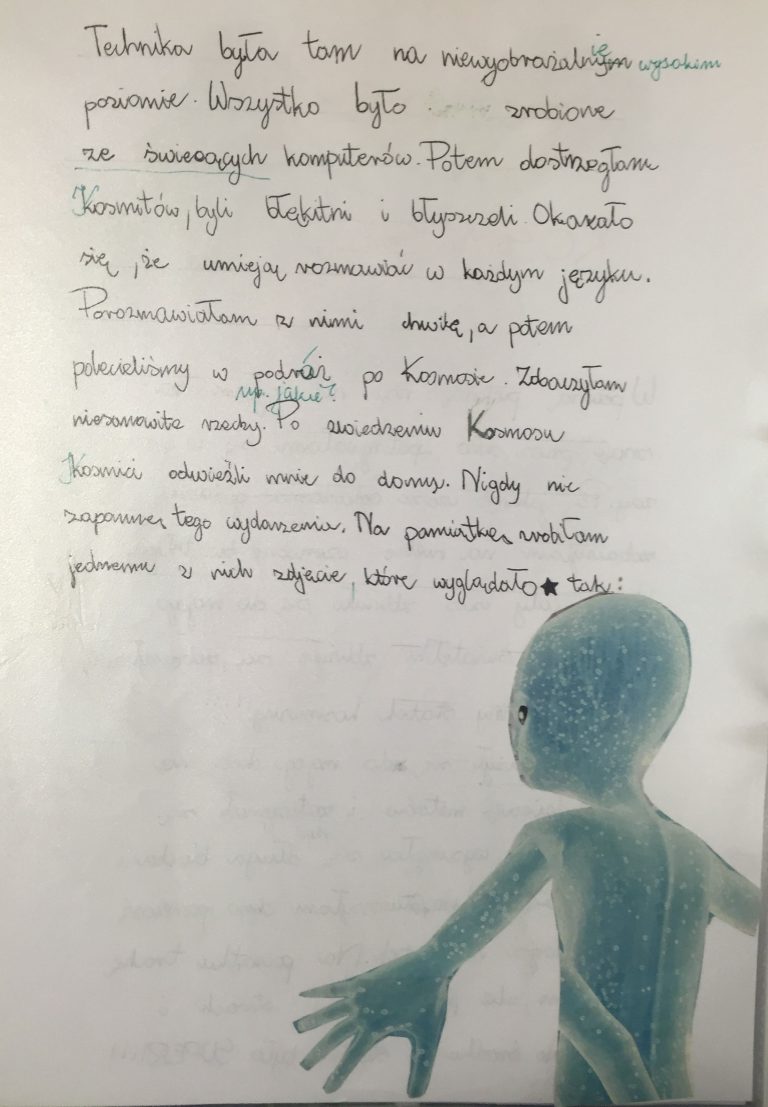 Technika była tam na niewyobrażalnie wysokim
poziomie. Wszystko było zrobione
ze świecących komputerów. Potem dostrzegłam
Kosmitów, byli błękitni i błyszczeli. Okazało
się, że umieją rozmawiać w każdym języku.
Porozmawiałam z nimi chwilę, a potem
polecieliśmy w podróż po Kosmosie. Zobaczyłam
np. jakie?
niesamowite rzeczy. Po zwiedzeniu Kosmosu
Kosmici odwieźli mnie do domu. Nigdy nie
zapomnę tego wydarzenia. Na pamiątkę zrobiłam
jednemu z nich zdjęcie, które wyglądało tak: